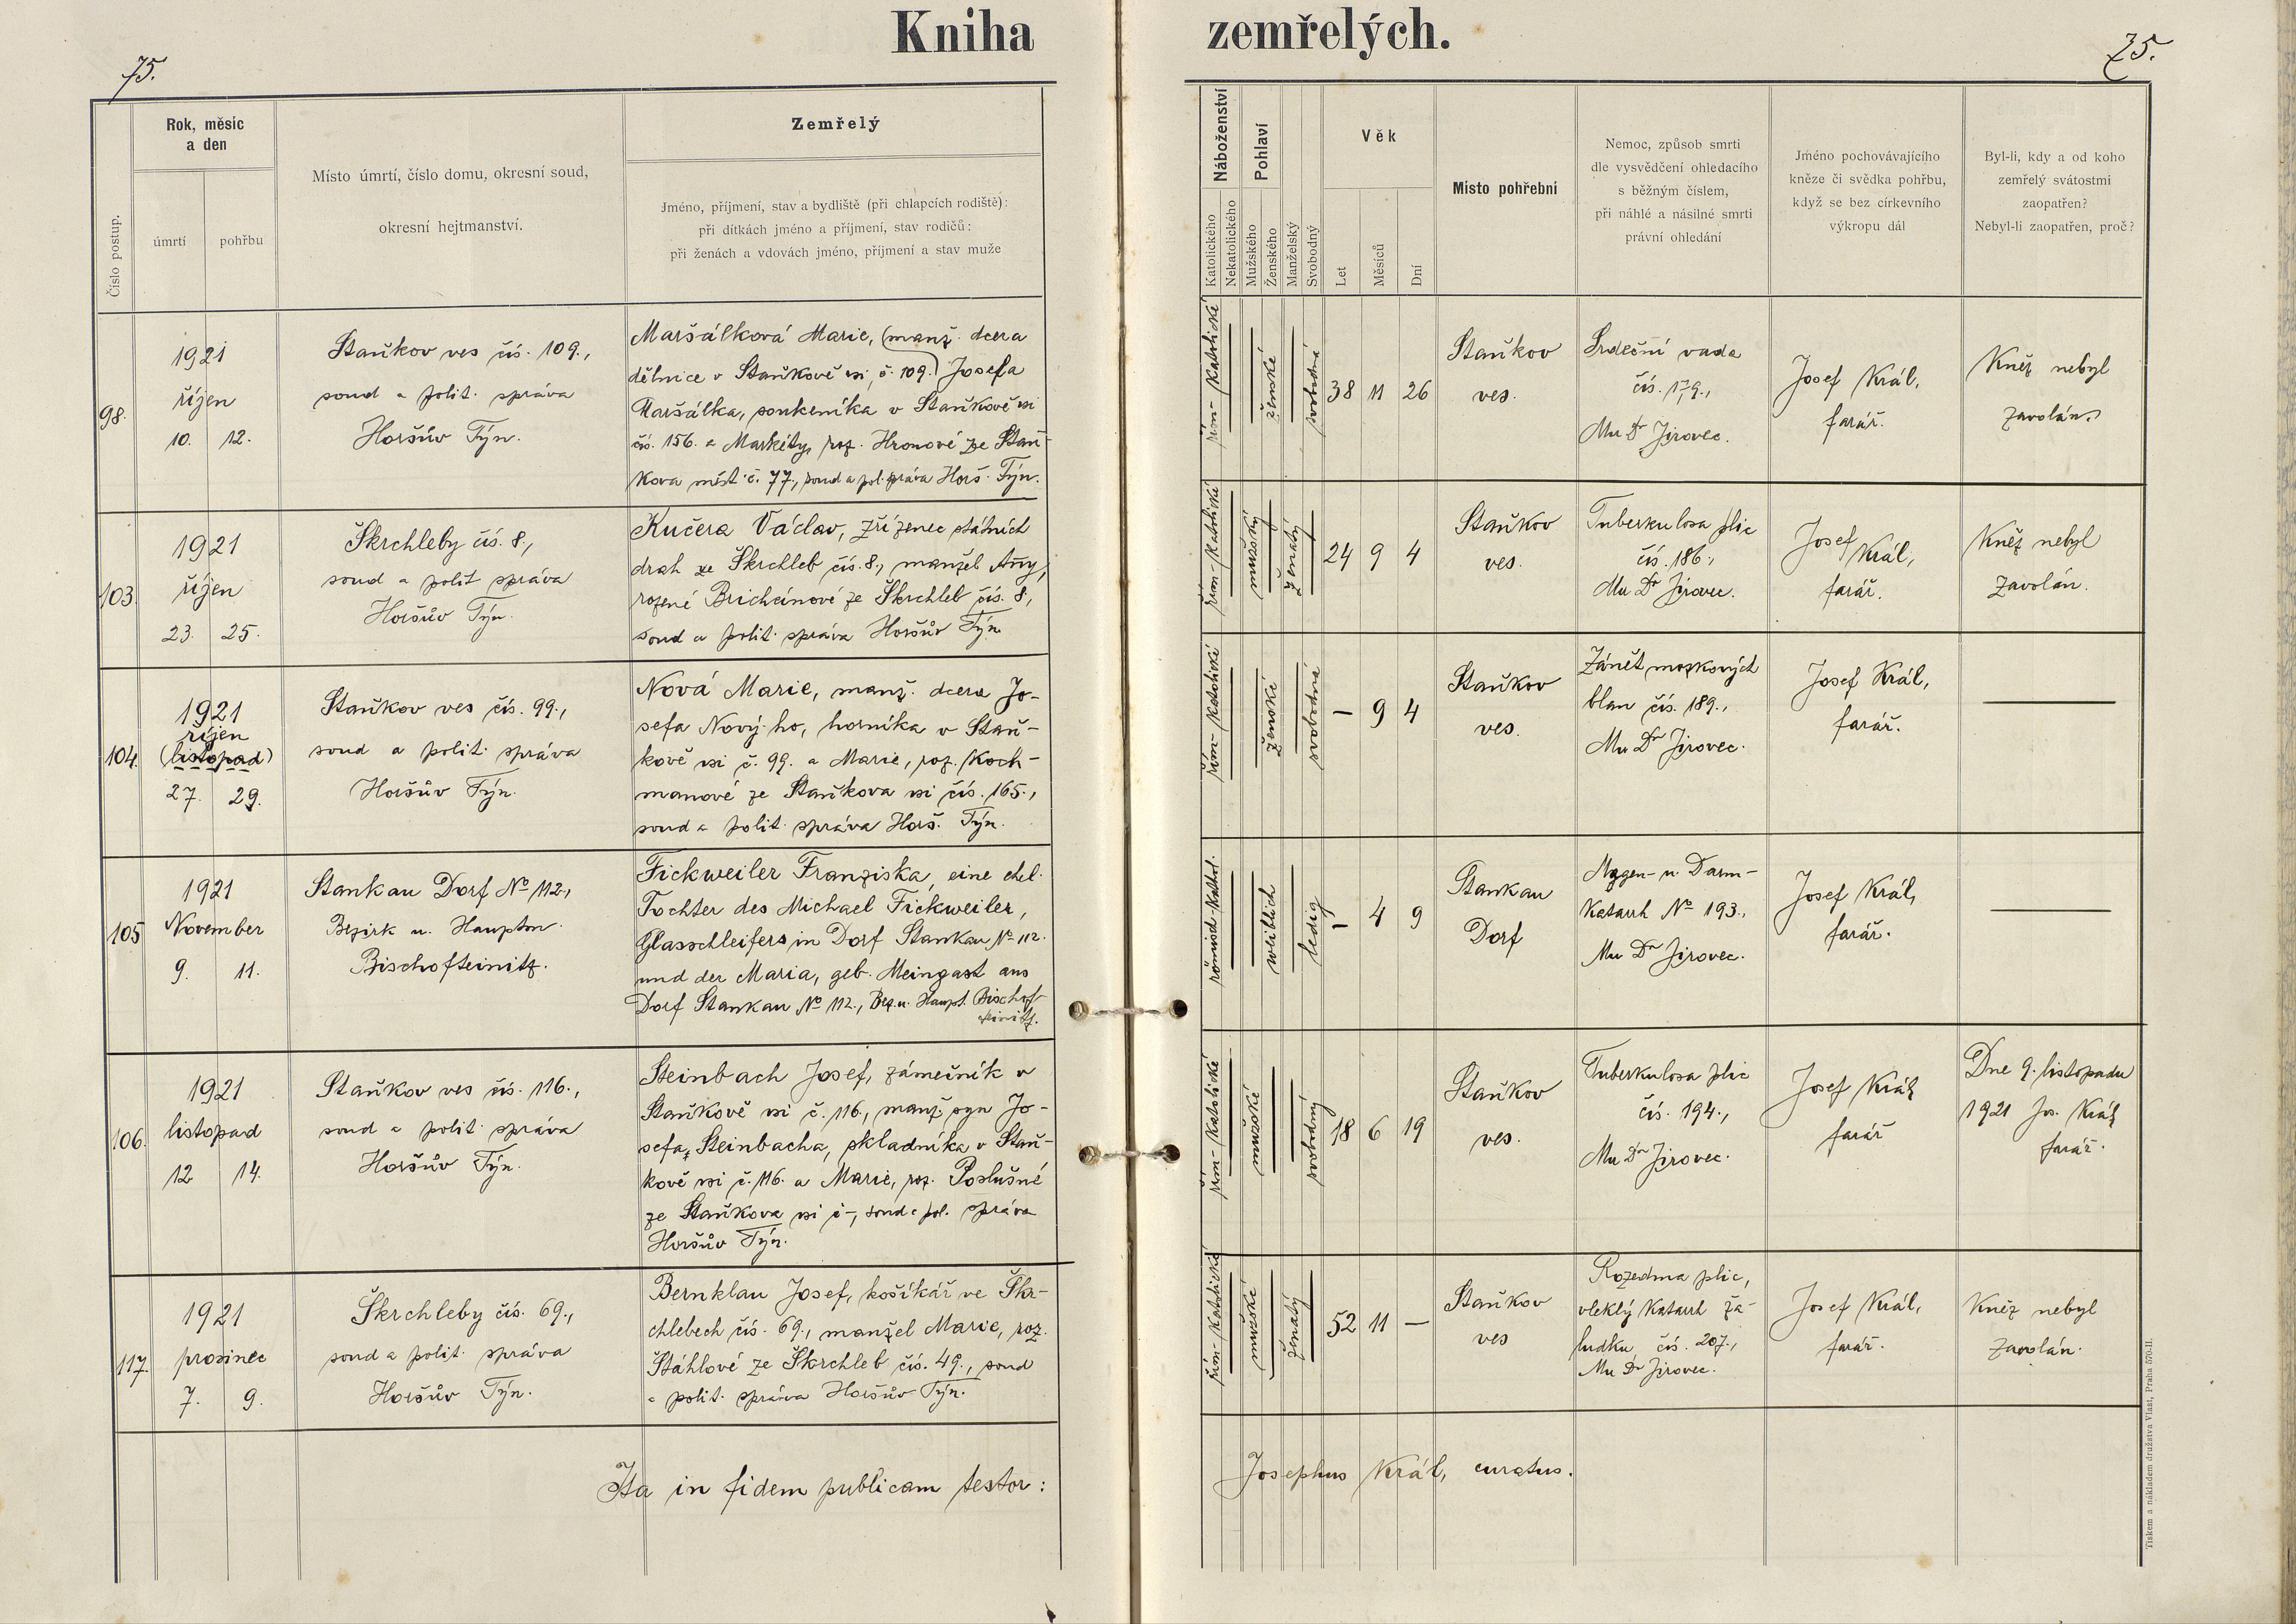 Kniha zemřelých.
75.
75.
Číslo postup.
Rok, měsíc
a den
úmrtí
pohřbu
Místo úmrtí, číslo domu, okresní soud,
okresní hejtmanství.
Zemřelý
Jméno, příjmení, stav a bydliště (při chlapcích rodiště):
při dítkách jméno a příjmení, stav rodičů:
při ženách a vdovách jméno, příjmení a stav muže
Náboženství
Katolického
Nekatolického
Pohlaví
Mužského
Ženského
Manželský
Svobodný
Věk
Let
Měsíců
Dní
Místo pohřební
Nemoc, způsob smrti
dle vysvědčení ohledacího
s běžným číslem,
při náhlé a násilné smrti
právní ohledání
Jméno pochovávajícího
kněze či svědka pohřbu,
když se bez církevního
výkropu dál
Byl-li, kdy a od koho
zemřelý svátostmi
zaopatřen?
Nebyl-li zaopatřen, proč?
98.
1921
říjen
10. 12.
Staňkov ves čís. 109.,
soud a polit. správa
Horšův Týn.
Maršálková Marie, (manž. dcera
dělnice v Staňkově vsi, č. 109.) Josefa
Maršálka, soukeníka v Staňkově vsi
čís. 156. a Markéty, roz. Hronové ze Staň-
kova měst. č. 77., soud a pol. správa Horš. Týn.
řím-katolické
ženské
svobodná
38 11 26
Staňkov
ves.
Srdeční vada
čís. 179.,
Mu Dr Jirovec.
Josef Král,
farář.
Kněz nebyl
zavolán.
103.
1921
říjen
23. 25.
Škrchleby čís. 8.,
soud a polit správa
Horšův Týn.
Kučera Václav, zřízenec státních
drah ze Škrchleb čís. 8., manžel Anny,
rozené Brichcínové ze Škrchleb čís. 8.,
soud a polit. správa Horšův Týn.
řím-katolické
mužský
ženatý
24 9 4
Staňkov
ves.
Tuberkulosa plic
čís. 186.,
Mu Dr Jirovec.
Josef Král,
farář.
Kněz nebyl
zavolán.
104.
1921
říjen
(listopad)
27. 29.
Staňkov ves čís. 99.,
soud a polit. správa
Horšův Týn.
Nová Marie, manž. dcera Jo-
sefa Nový-ho, horníka v Staň-
kově vsi č. 99. a Marie, roz. Koch-
manové ze Staňkova vsi čís. 165.,
soud a polit. správa Horš. Týn.
řím-katolické
ženské
svobodná
— 9 4
Staňkov
ves.
Zánět mozkových
blan čís. 189.,
Mu Dr Jirovec.
Josef Král,
farář.
—
105
1921
November
9. 11.
Stankau Dorf No 112.,
Bezirk u. Hauptm.
Bischofteinitz.
Fickweiler Franziska, eine ehel.
Tochter des Michael Fickweiler,
Glasschleifers in Dorf Stankau No 112.
und der Maria, geb. Meingast aus
Dorf Stankau No 112., Bez. u. Haupt. Bischof-
teinitz.
römisch-kathol.
weiblich
ledig
— 4 9
Stankau
Dorf
Magen- u. Darm-
Katarrh No 193.,
Mu Dr Jirovec.
Josef Král,
farář.
—
106.
1921
listopad
12 14.
Staňkov ves čís. 116.,
soud a polit. správa
Horšův Týn.
Steinbach Josef, zámečník v
Staňkově vsi č. 116., manž. syn Jo-
sefa, Steinbacha, skladníka v Staň-
kově vsi č. 116. a Marie, roz. Poslušné
ze Staňkova vsi č -, soud a pol. správa
Horšův Týn.
řím-katolické
mužské
svobodný
18 6 19
Staňkov
ves.
Tuberkulosa plic
čís. 194.,
Mu Dr Jirovec.
Josef Král,
farář
Dne 9. listopadu
1921 Jos. Král,
farář.
117.
1921
prosinec
7. 9.
Škrchleby čís. 69.,
soud a polit. správa
Horšův Týn.
Bernklau Josef, košíkář ve Škr-
chlebech čís. 69., manžel Marie, roz.
Štáhlové ze Škrchleb čís. 49., soud
a polit. správa Horšův Týn.
řím-katolické
mužské
ženatý
52 11 —
Staňkov
ves
Rozedma plic,
vleklý katarrh ža-
ludku, čís. 207.,
Mu Dr Jirovec.
Josef Král,
farář.
Kněz nebyl
zavolán.
Ita in fidem publicam testor:
Josephus Král, curatus.
Tiskem a nákladem družstva Vlast, Praha 570-II.